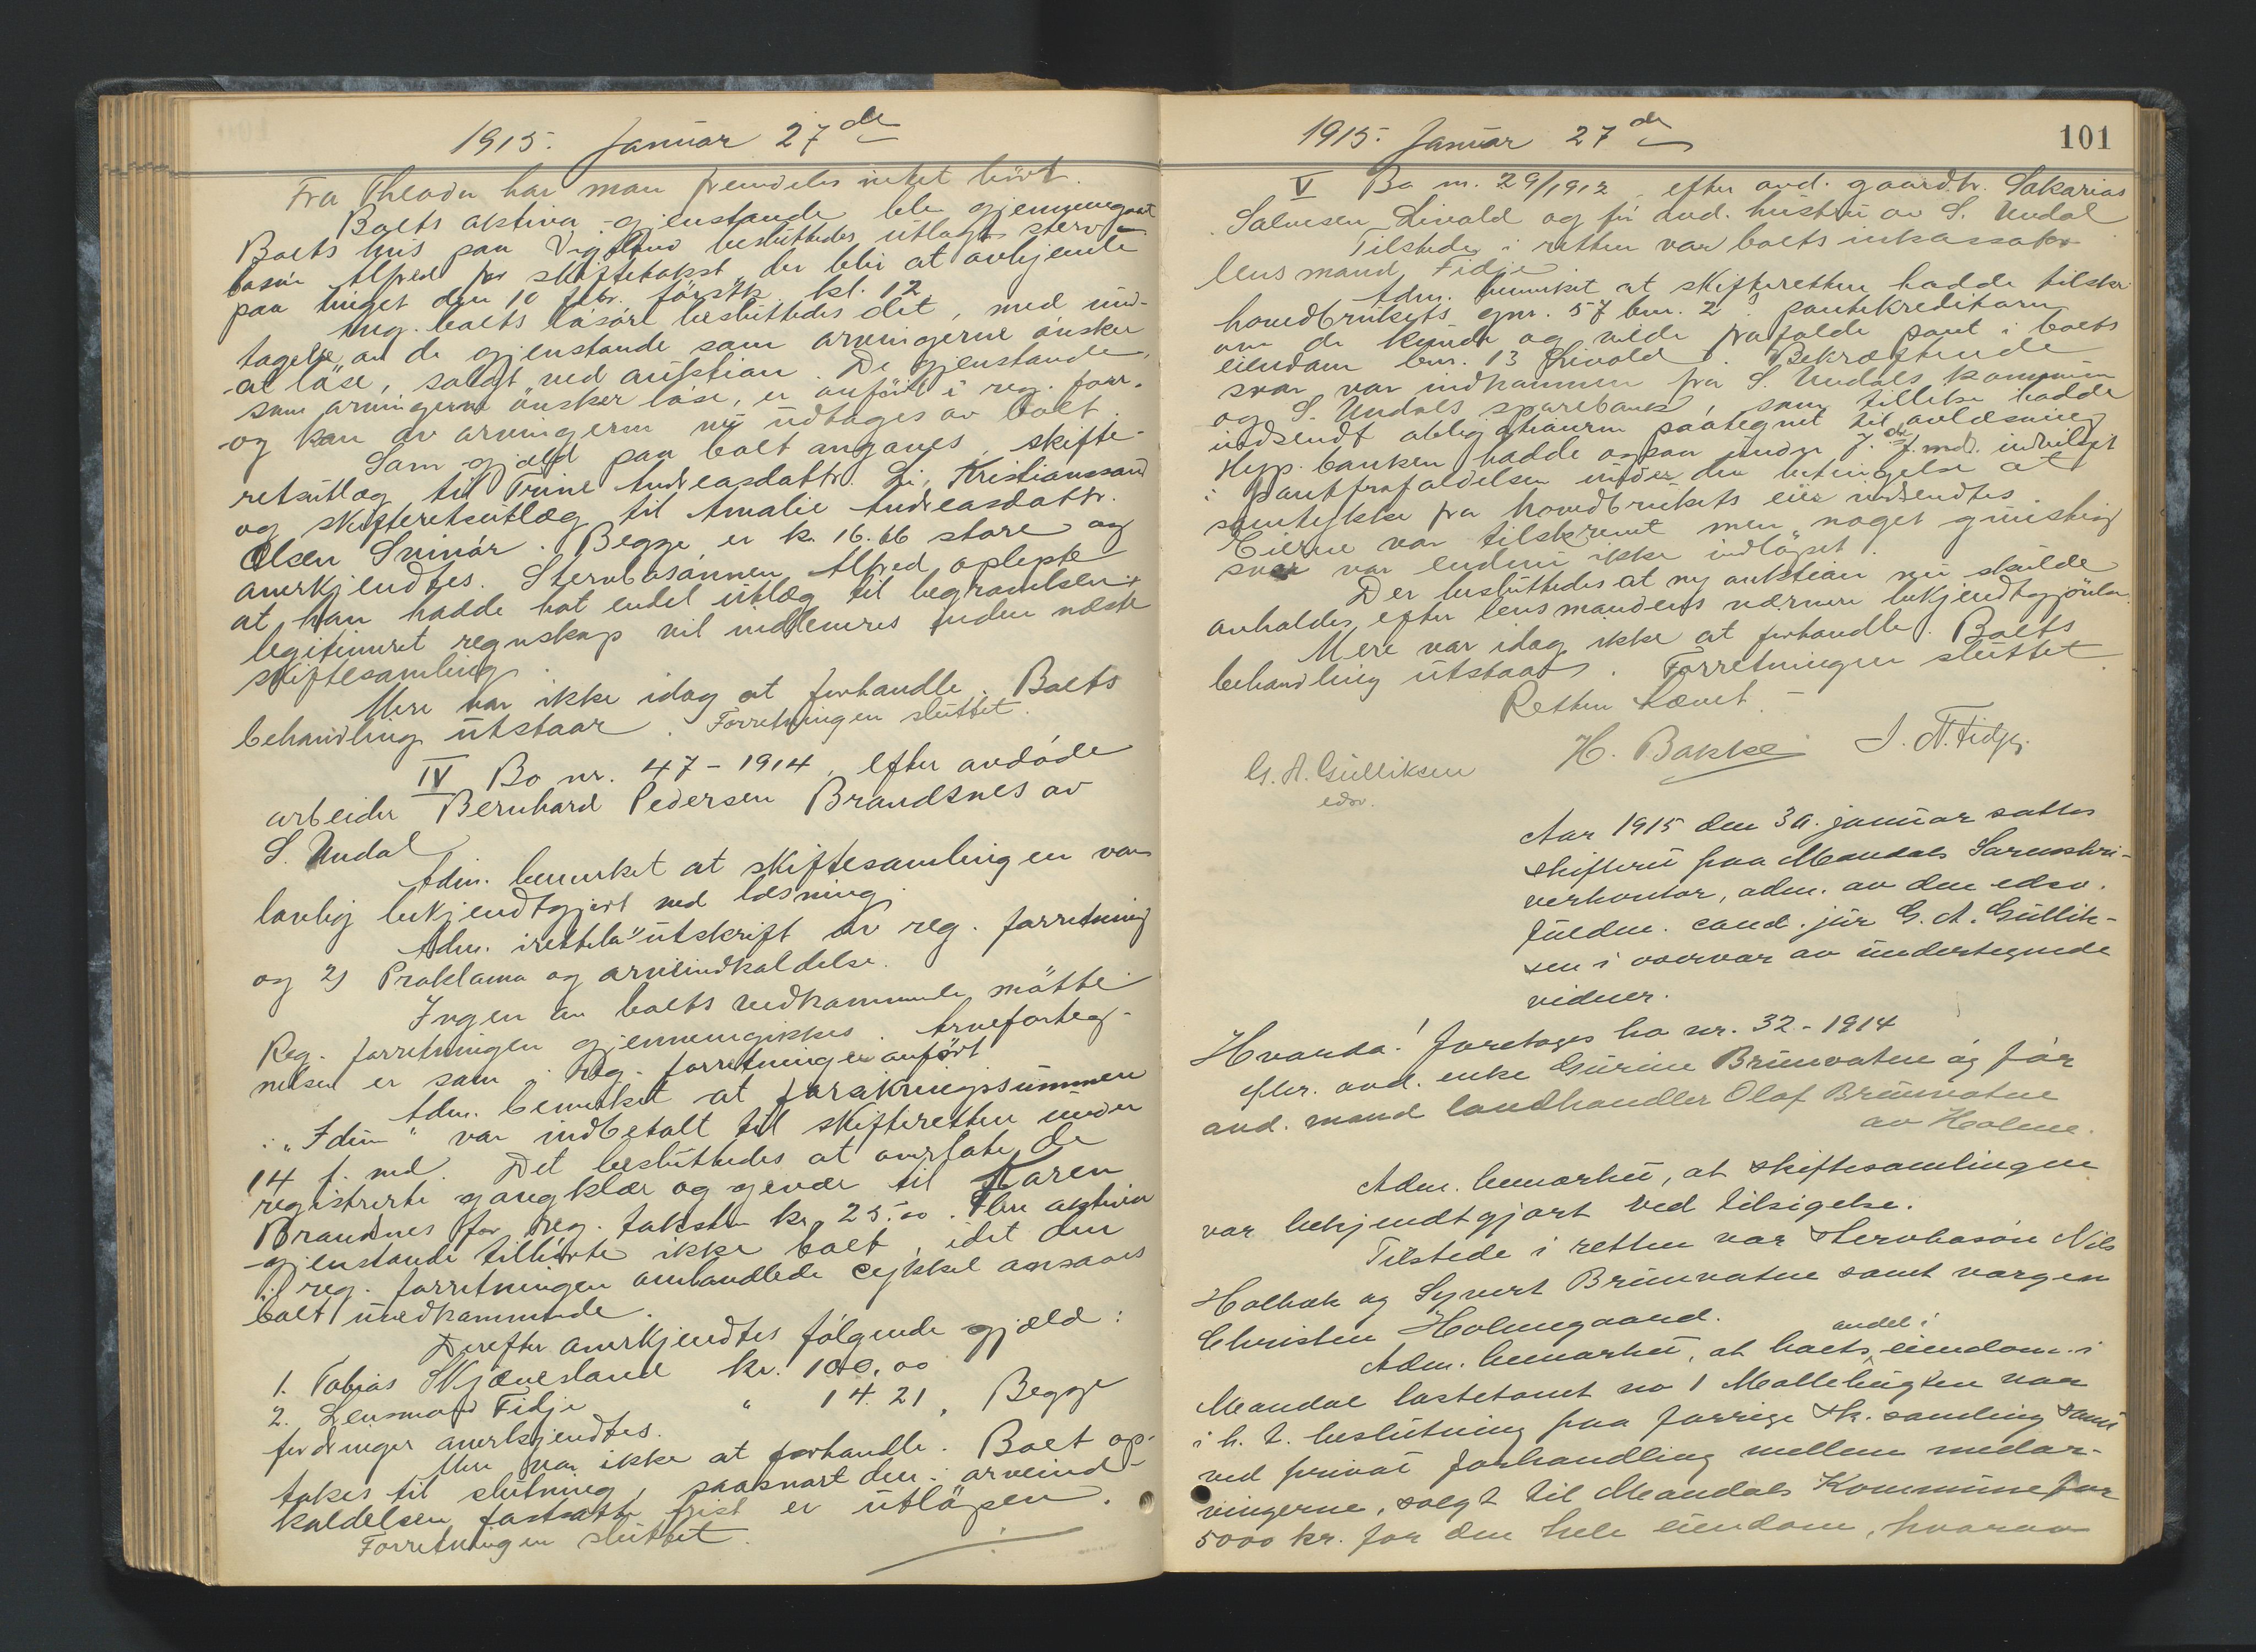 1915. Januar 27de
Fra Theodor har man fremdeles intet hört.
Boets aktiva gjenstande ble gjennemgaat
Boets hus paa Vigeland besluttedes utlagt sterv-
bosön Alfred for skiftetakst, der blir at avhjemle
paa tinget den 10 febr. förstk. kl. 12
Ang. boets lösöre besluttedes det, med und-
tagelse av de gjenstande som arvingerne önsker
at löse, solgt ved auktion. De gjenstande,
som arvingerne önsker löse, er anfört i reg. forr.
og kan av arvingerne nu udtages av boet.
Som gjæld paa boet angaves, skifte-
retsutlæg til Trine Andreasdattr. Li, Kristianssand
og skifteretsutlæg til Amalie Andreasdattr.
Olsen Svinör. Begge er k. 16.66 store og
anerkjendtes. Stervbosönnen Alfred oplyste
at han hadde hat endel utlæg til begravelsen;
legitimeret regnskap vil indleveres inden næste
skiftesamling.
Mere var ikke idag at forhandle. Boets
behandling utstaar. Forretningen sluttet.
IV Bo nr. 47 - 1914, efter avdöde
arbeider Bernhard Pedersen Brandsnes av
S. Undal
Adm. bemerket at skiftesamlingen var
lovlig bekjendtgjort ved læsning.
Adm. irettela 1) utskrift av reg. forretning
og 2) Proklama og arveindkaldelse.
Ingen av boets vedkommende mötte.
Reg. forretningen gjennemgikkes. Arveforteg-
nelsen er som i reg. forretningen anfört
Adm. bemerket at forsikringssummen
i "Idun" var indbetalt til skifteretten under
14 f. md. Det besluttedes at overlate de
registrerte gangklær og gevær til Karen
Brandsnes for reg. taksten kr. 25.00. Flere aktiva
gjenstande tilhörte ikke boet, idet den
i reg. forretningen omhandlede cykkel ansaaes
boet uvedkommende.
Derefter anerkjendtes fölgende gjæld:
1. Tobias Skjævesland kr. 100.00
2. Lensmand Fidje " 14.21, Begge
fordringer anerkjendtes.
Mere var ikke at forhandle. Boet op-
takes til slutning, saasnart den i arveind-
kaldelsen fastsatte frist er utlöpen.
Forretningen sluttet.
1915. Januar 27de
101
V Bo nr. 29/1912, efter avd. gaardbr. Sakarias
Salvesen Livold og för avd. hustru av S. Undal
Tilstede i retten var boets inkassator
lensmand Fidje
Adm. bemerket at skifteretten hadde tilskr.
hovedbrukets gnr. 57 bnr. 2's pantekreditorer
om de kunde og vilde frafalde pant i boets
eiendom bnr. 13 Livold. Bekræftende
svar var indkommen fra S. Undals kommune
og S. Undals sparebank, som tillike hadde
indsendt obligationerne paategnet til avlæsning
Hyp. banken hadde ogsaa under 7. de f. md. indvilget
i pantfrafaldelsen under den betingelse at
samtykke fra hovedbrukets eier indsendtes.
Eierne var tilskrevet men noget gunstig
svar var endnu ikke indlöpet.
Der besluttedes at ny auktion nu skulde
avholdes efter lensmandens nærmere bekjendtgjörelse.
Mere var idag ikke at forhandle. Boets
behandling utstaar. Forretningen sluttet.
Retten hævet
G. A. Gulliksen
edsv.
H. Bakke
J. N. Fidje.
Aar 1915 den 30. januar sattes
skifteret paa Mandals Sorenskri-
verkontor, adm. av den edsv.
fuldm. cand. jur G. A. Gullik-
sen i overvær av undertegnede
vidner.
Hvorda! Foretages bo nr. 32 - 1914
efter. avd. enke Gurine Brunvatne og för
avd. mand landhandler Olaf Brunvatne
av Holme.
Adm. bemerket, at skiftesamlingen
var bekjendtgjort ved tilsigelse.
Tilstede i retten var stervbosön Nils
Holbæk og Syvert Brunvatne samt vergen
Christen Holmegaard.
Adm. bemerket, at boets andel i eiendom i
Mandal lastetomt no 1 Mallebugten var
i h. t. beslutning paa forrige sk. samling samt
ved privat forhandling mellem medar-
vingerne, solgt til Mandals Kommune for
5000 kr. for den hele eiendom, hvorav